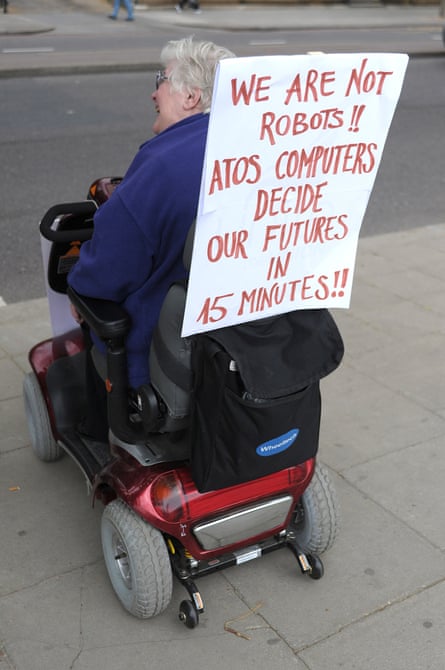 WE ARE NOT
ROBOTS!!
ATOS COMPUTERS
DECIDE
OUR FUTURES
IN
15 MINUTES!!
Wheeltech